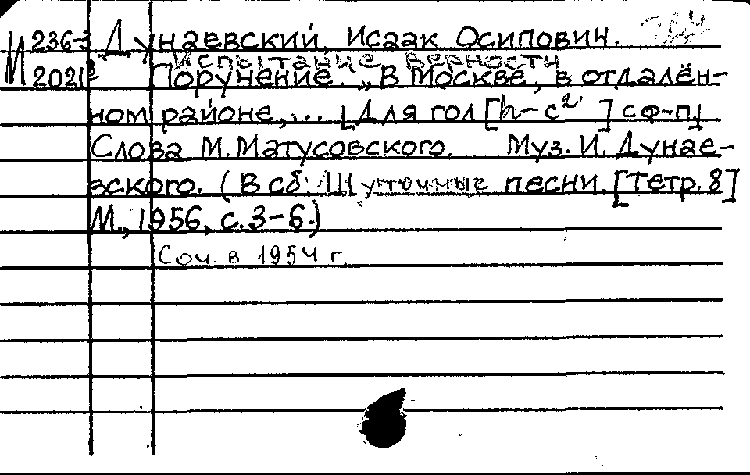 М 236-3 Дунаевский, Исаак Осипович.
Испытание верности
2021 Поручение. „В Москве, в отдалён-
ном районе,... [Для гол [h-c²] с ф-п]
Слова М. Матусовского. Муз. И. Дунае-
вского. (В сб: Шуточные песни. [Тетр. 8]
М., 1956, с. 3-6.)
Соч. в 1954 г.